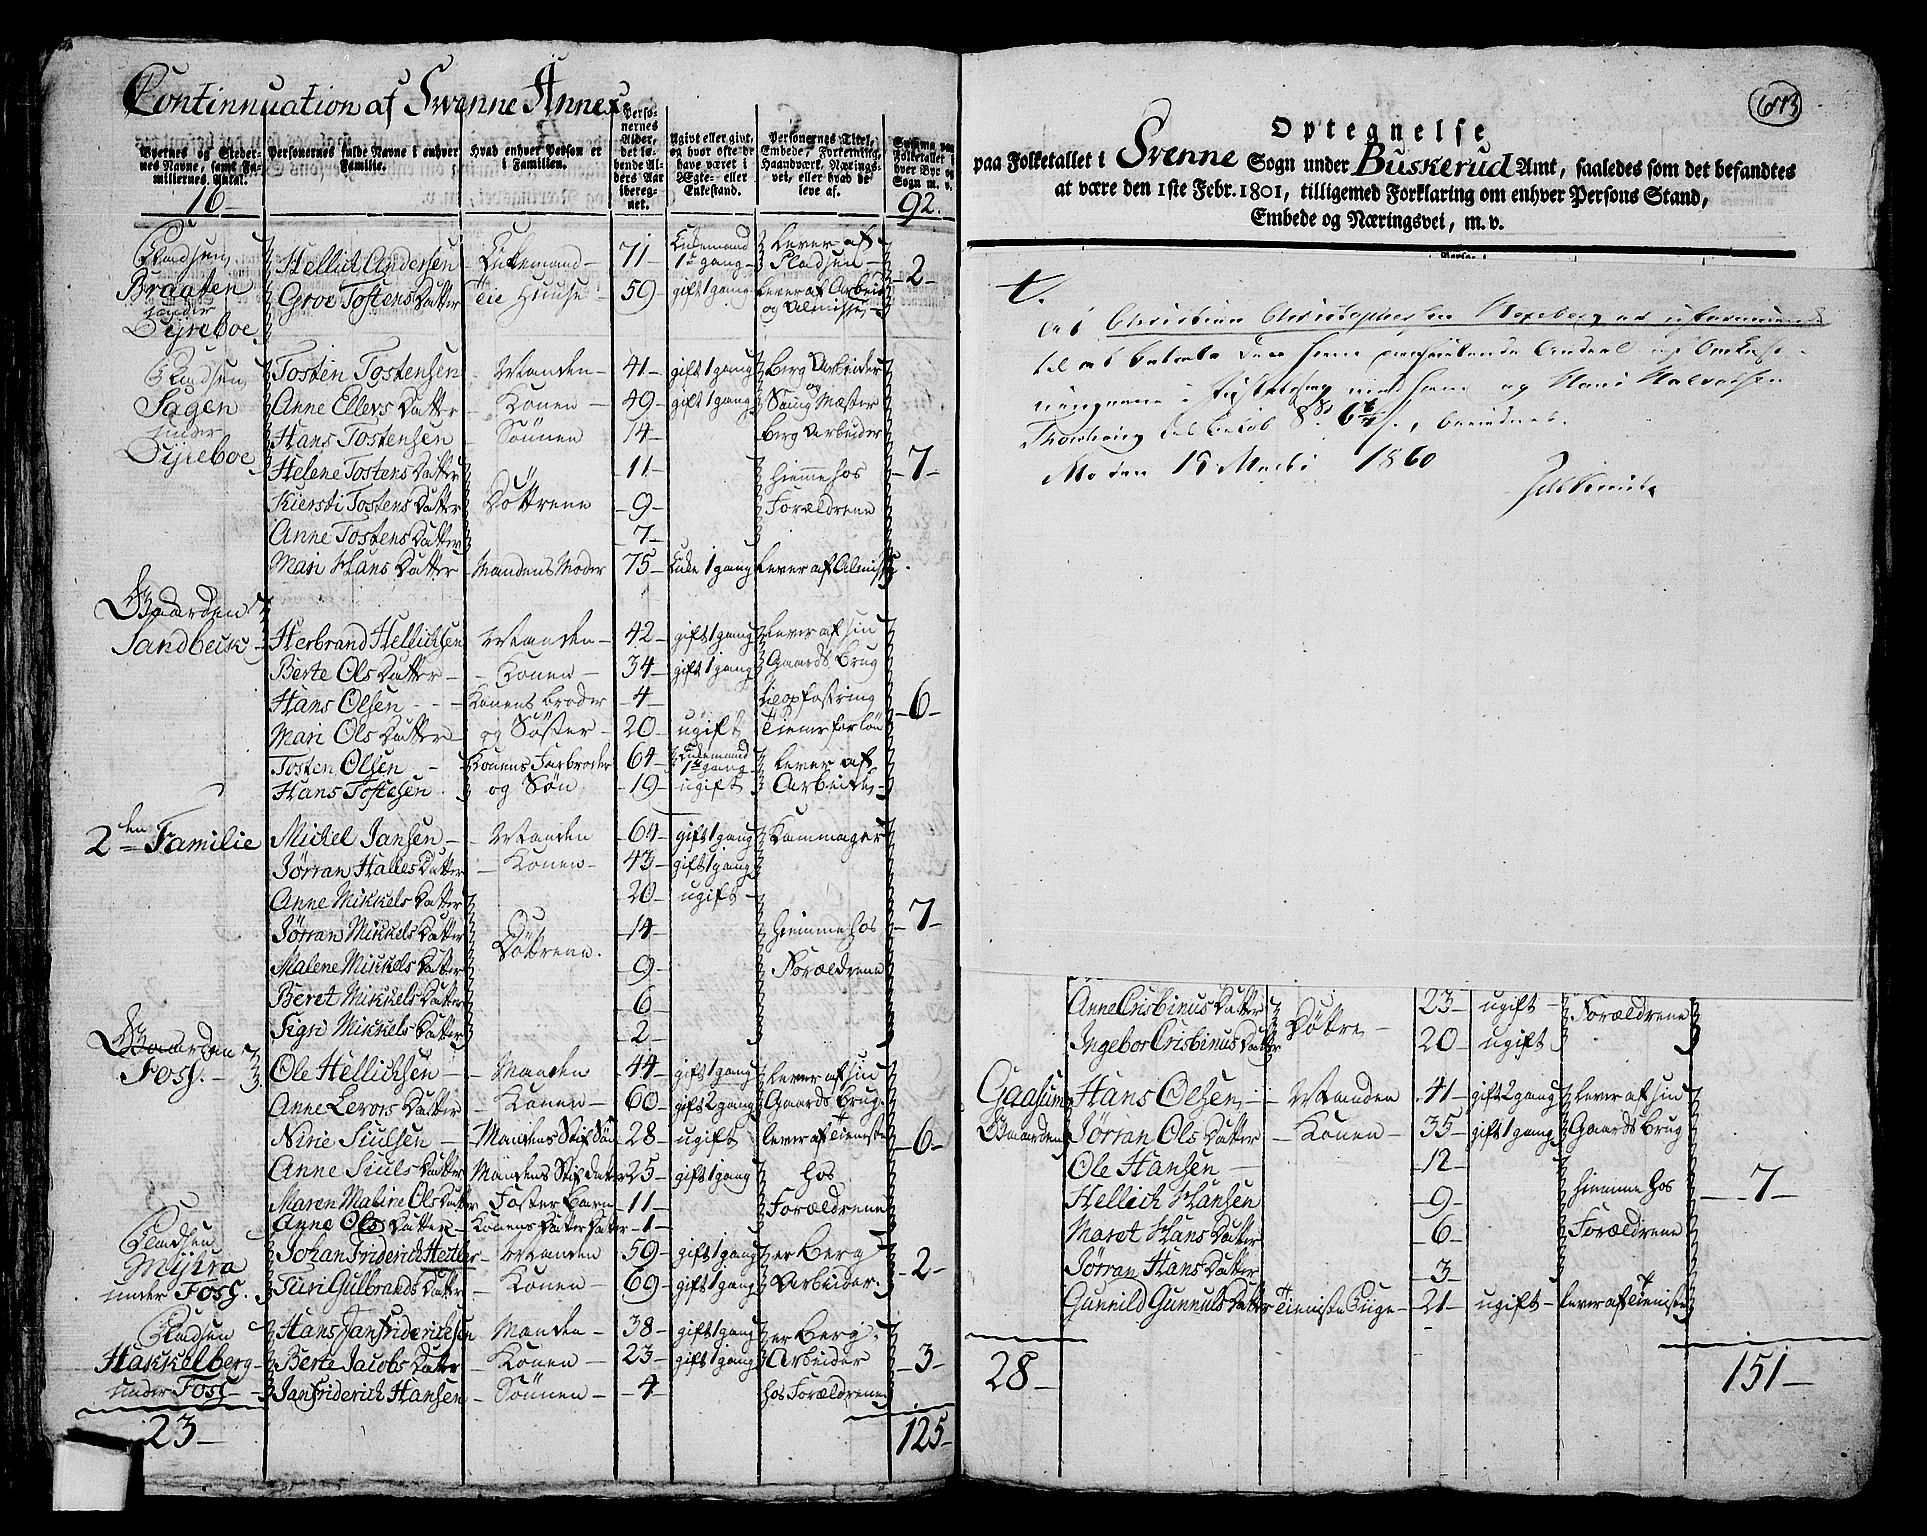 Continnuation af Svenne Annex.
Byernes og Steder-
nes Navne, samt Fa-
millernes Antal.
Personernes fulde Navne i enhver
Familie.
Hvad enhver Person er
i Familien.
Perso-
nernes
Alder,
det lø-
bende Al-
ders Aar
iberegn-
et.
Ugivt eller givt,
og hvor ofte de
have været i
Ægte- eller
Enkestand.
Personernes Titel,
Embede, Forretning,
Haandværk, Nærings-
vei, eller hvad de
leve af.
Summa paa
Folketallet i
hver Bye og
Sogn m. v.
16 92.
Pladsen
Braaten
under
Dyreboe
Hellich Andersen - Enkemand - 71 Enkemand 1te gang Lever af Pladsen
Groe Tostens Datter Tie Huuse 59 gift 1 gang lever af Arbeid og Almisse 2
Pladsen
Sagen
under
Dyreboe
Tosten Tostensen - Manden - 41 gift 1 gang Berg Arbeider
Anne Ellevs Datter - Konen - 49 gift 1 gang og Saug Mæster
Hans Tostensen - Sønnen 14 berg Arbeider
Helene Tostens Datter 11 hiemme hos 7
Kiersti Tostens Datter Døttrene 9 Forældrene
Anne Tostens Datter 7
Mari Hans Datter Mandens Moder 75 Enke 1 gang lever af Almisse
Gaarden
Sandbeck
Herbrand Hellichsen Manden - 42 gift 1 gang lever af sin
Berte Ols Datter - Konen - 34 gift 1 gang Gaards Brug
Hans Olsen - Konens broder 4 til opfostring 6
Mari Ols Datter og Søster 20 ugift Tiener for løn
Tosten Olsen - Konens Farbroder 64 Enkemand 1te gang lever af
Hans Tostesen og Søn 19 ugift Arbeide
2den Familie
Michel Jansen - Manden 64 gift 1 gang Kammager
Jørran Halles Datter - Konen - 43 gift 1 gang
Anne Mikkels Datter 20 ugift
Jørran Mikkels Datter Døttrene. 14 hiemme hos 7
Malene Mikkels Datter 9 Forældrene
Beret Mikkels Datter 6
Sigri Mikkels Datter 2
Gaarden
Foss.
Ole Hellichsen - Manden 44 gift 1 gang lever af sin
Anne Levors Datter - Konen - 60 gift 2 gang Gaards Brug.
Nirie Siulsen - Mandens Stif Søn 28 ugift lever af Tieniste 6
Anne Siuls Datter Mandens Stif Datter 25 gift 1 gang hos
Maren Malire Ols Datter Foster Barn 11 Forældrene
Anne Ols Datter Konens Datter Datter 1
Pladsen
Myhra
under Foss.
Johan Friderich Hertler - Manden 59 gift 1 gang er Berg
Turi Gulbrands Datter - Konen - 69 gift 1 gang Arbeider. 2
Pladsen
Hakkelberg
under Foss
Hans Janfridericksen Manden - 38 gift 1 gang er Berg
Berte Jacobs Datter - Konen - 23 gift 1 gang Arbeider 3
Janfriderich Hansen - Sønnen - 4 hos Forældrene
23 125
673
Optegnelse
paa Folketallet i Svenne Sogn under Buskerud Amt, saaledes som det befandtes
at være den 1ste Febr. 1801, tilligemed Forklaring om enhver Persons Stand,
Embede og Næringsvei, m. v.
At Christian Christophersen
til at betale den ham Andeel
med ham og Hans Halvorsen
8 , 
Mo den 15 1860
Anne Crisbinus Datter Døttre 23 ugift Forældrene
Ingebor Crisbinus Datter 20 ugift
Gaasum
Gaarden
Hans Olsen - Manden 41 gift 2 gang lever af sin
Jørran Ols Datter - Konen - 35 gift 1 gang Gaards Brug
Ole Hansen 12
Hellich Hansen 9 hiemme hos 7
Maret Hans Datter 6 Forældrene
Jørran Hans Datter 3
Gunnild Gunnuls Datter Tieniste Piige 21 ugift lever af Tieniste
28 151